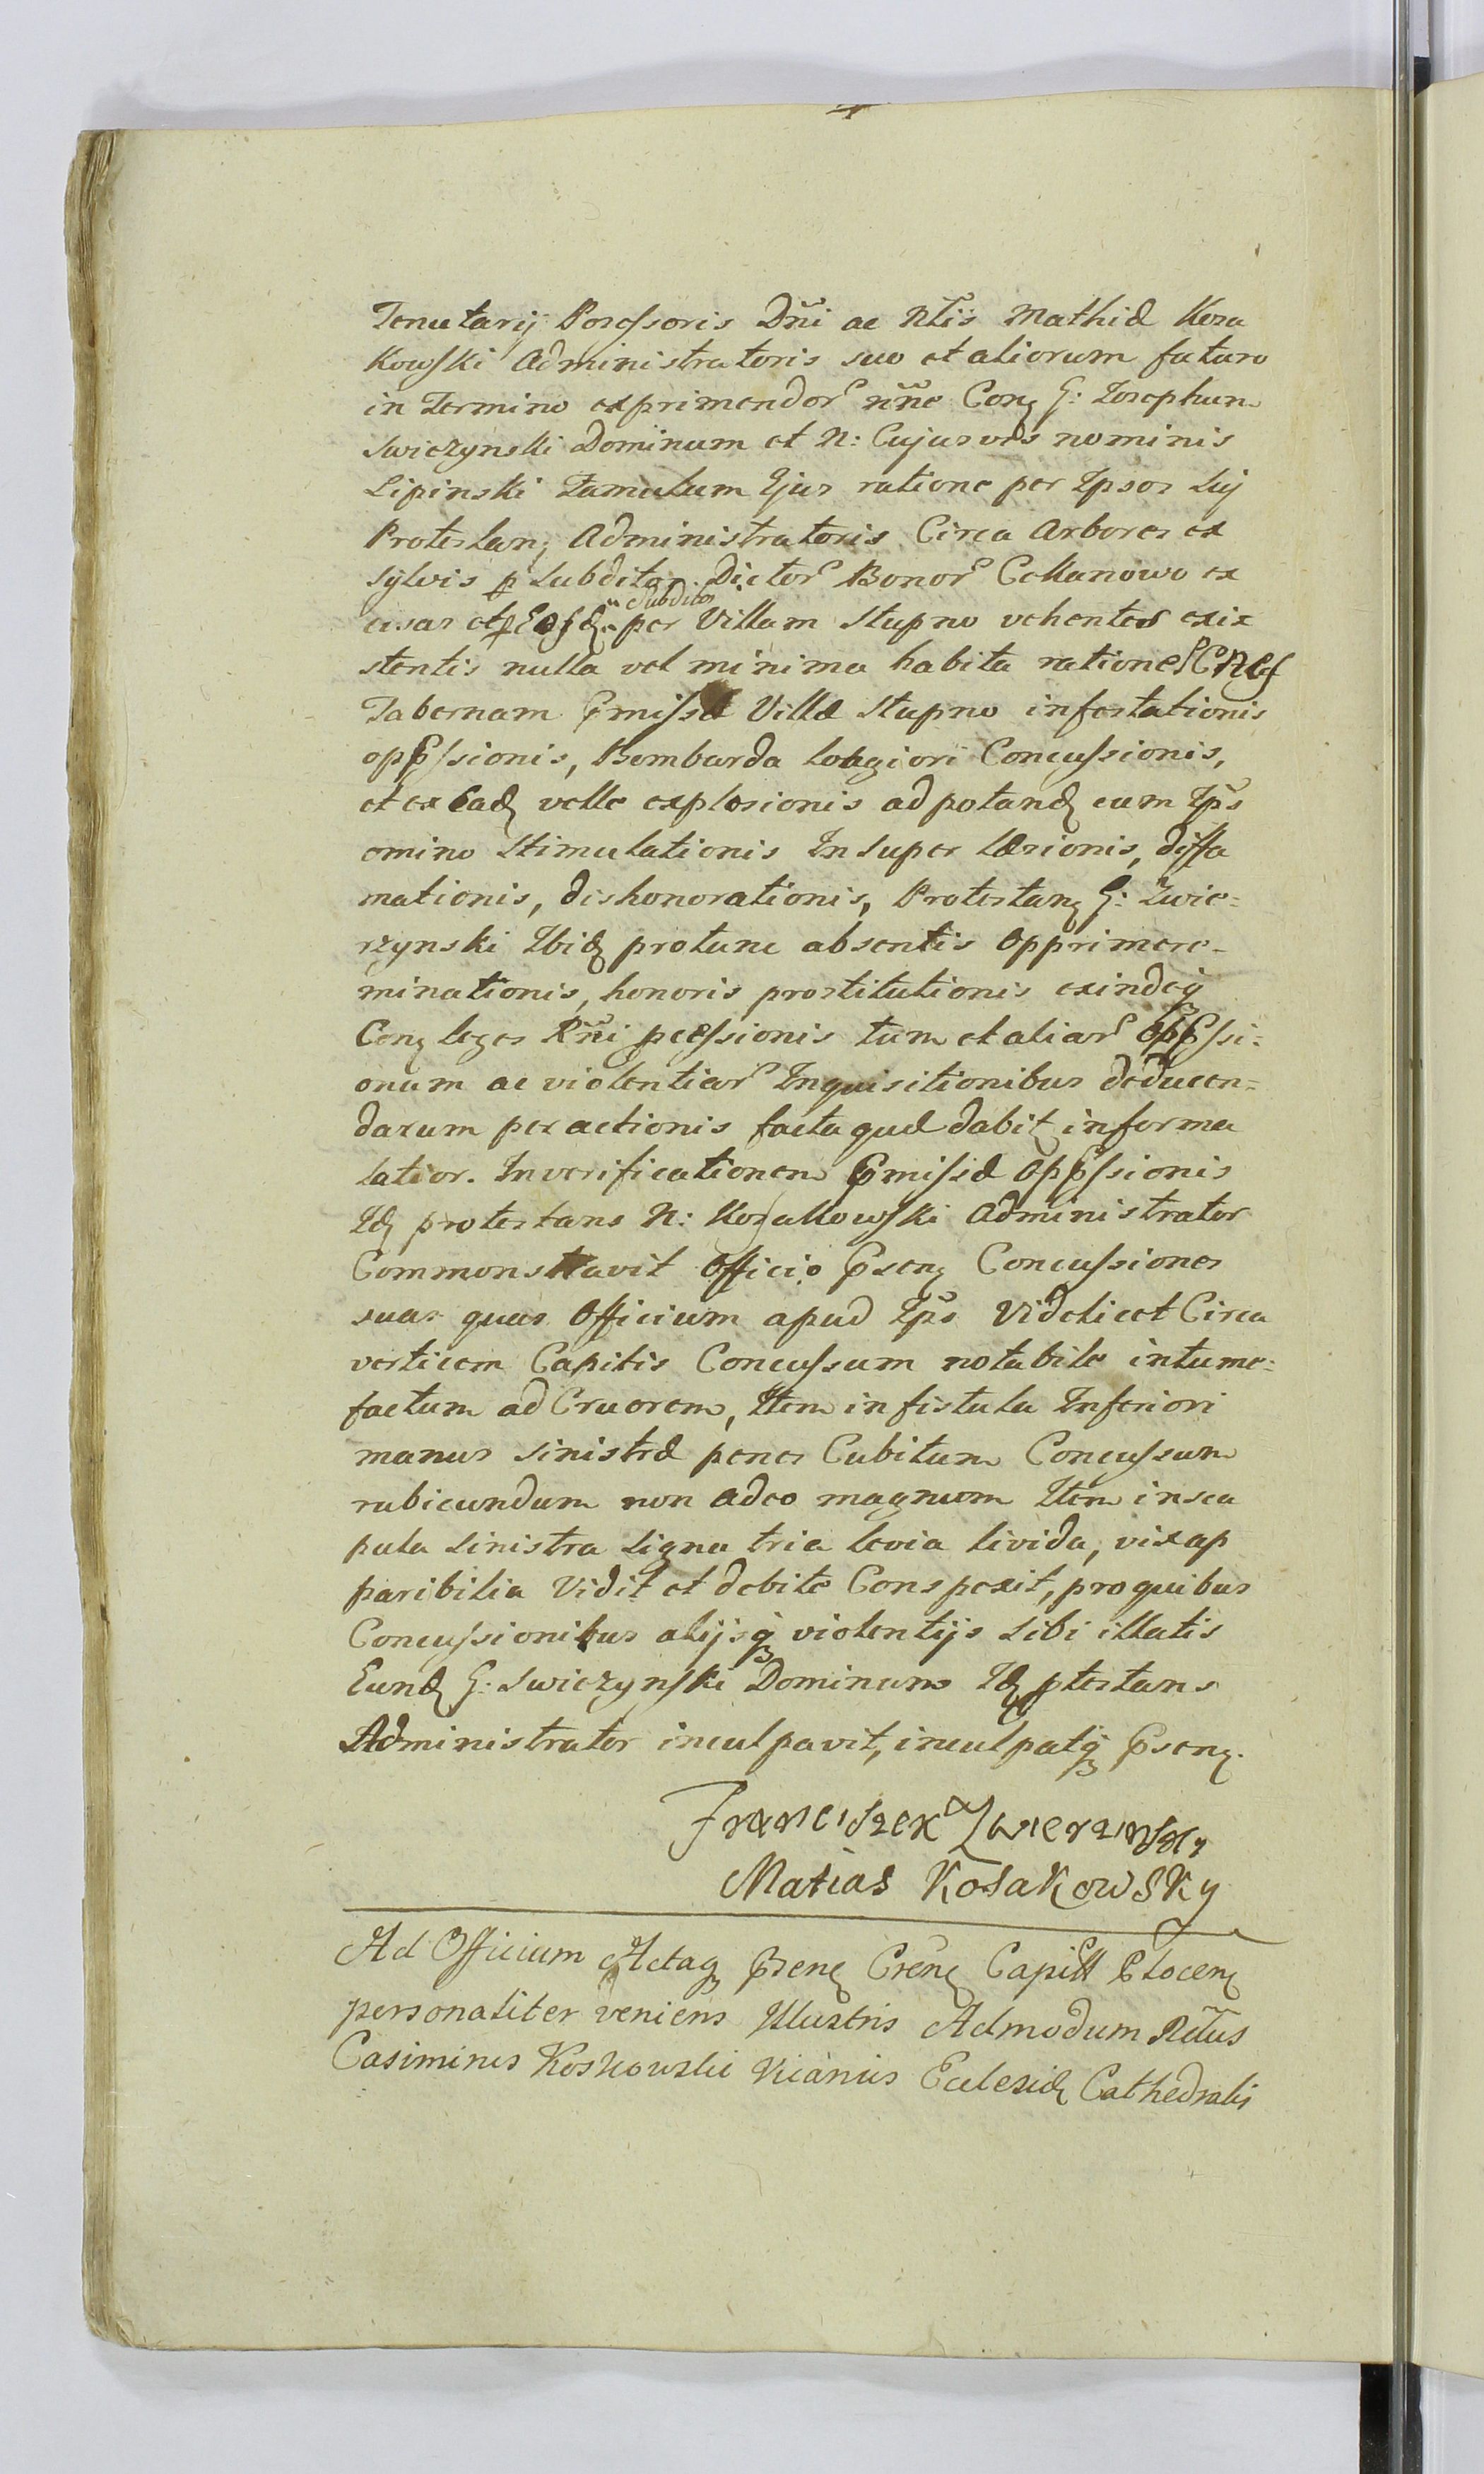 Tenutarij Possessoris Dñi ac Nlis Mathiæ Koza
Kowski Administratoris suo et aliorum futuro
in Termino exprimendor nñe Conq G: Josephum
Swierzynski Dominum et N: Cujusvis nominis
Lipinski Famulum Ejus ratione per Ipsos Luj
Protestanq Administratoris Circa Arbores ex
Sylvis p Subditos Dictor Bonor Cekanowo ex
cisas et p Eosdq Subditos per Villam Stupno vehentes exix
stentis nulla vel minima habita ratione
Tabernam pmissæ Villæ Stupno infestationis
oppssionis, Bombarda longiori Concussionis,
et ex eadq velle explosionis ad potandq cum Ips
omino Stimulationis Insuper Læsionis, diffa
mationis, dishonorationis, Protestanq G: Zwie-
rzynski Ibidq protunc absentis Opprimere-
minationis, honoris prostitutionis exindeq
Conq leges Rñi pcessionis tum et aliar oppssi-
onum ac violentiar Inquisitionibus deducen-
darum peractionis facta quæ dabit informa
latior. In verificationem pmissæ Oppssionis
Idq protestans N: Kozakowski Administrator
Commonstravit Officio psenq Concussiones
suas quas Officium apud Ips Videlicet Circa
verticem Capitis Concussum notabile intume-
factum ad Cruorem, Item in fistula Inferiori
manus sinistræ penes Cubitum Concussum
rubicundum non adeo magnum Item in sca
pula Sinistra Signa tria levia livida, vix ap
paribilia Vidit et debite Conspexit, pro quibus
Concussionibus alijsq violentijs Sibi illatis
Eundq G: Swierzynski Dominum Idq ptestans
Administrator inculpavit, inculpatq psenq.
Franciszek Zwierzinsky
Matias Kosakowsky
Ad Officium Actaq psenq Crenq Capitt Plocenq
personaliter veniens Illustris Admodum Rdus
Casimirus Koskowski Vicarius Ecclesiæ Cathedralis